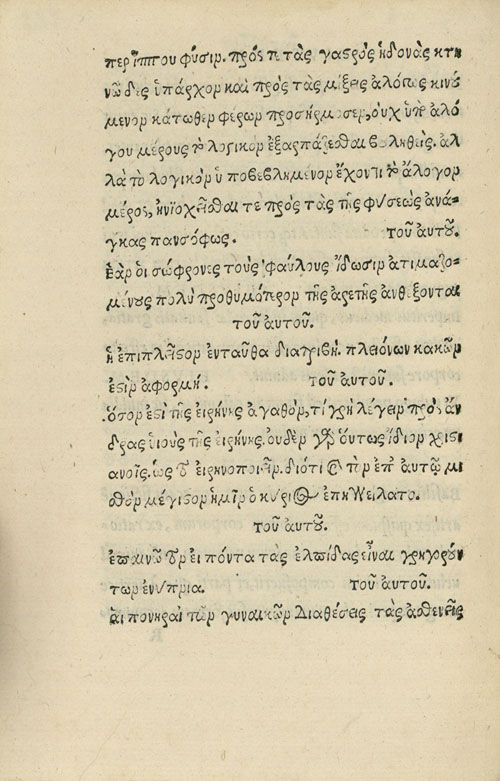 περίττου φύσιν. πρός τε τὰς γαστρὸς ἡδονὰς κτη
νῶδες ὑπάρχον καὶ πρὸς τὰς μίξεις ἀλόγως κινού
μενον κάτωθεν φέρων προσήρμοσεν, οὐχ ὑπὸ ἀλό
γου μέρους τὸ λογικὸν ἐξαρπάζεσθαι βουληθείς. ἀλ
λὰ τὸ λογικὸν ὑποβεβλημένον ἔχον τι τὸ ἄλογον
μέρος, ἡνιοχεῖσθαί τε πρὸς τὰς τῆς φύσεως ἀνά=
γκας πανσόφως. τοῦ αὐτοῦ.
ἐὰν οἱ σώφρονες τοὺς φαύλους ἴδωσιν ἀτιμαζο=
μένους πολὺ προθυμότερον τῆς ἀρετῆς ἀνθέξονται
τοῦ αὐτοῦ.
ἡ ἐπιπλεῖστον ἐνταῦθα διατριβὴ. πλειόνων κακῶν
ἐστὶν ἀφορμή. τοῦ αὐτοῦ.
ὅσον ἐστὶ τῆς εἰρήνης ἀγαθὸν, τί χρὴ λέγειν πρὸς ἄν
δρας υἱοὺς τῆς εἰρήνης. οὐδὲν γὰρ οὕτως ἴδιον χριστι
ανοῖς. ὡς τὸ εἰρηνοποιεῖν. διότι καὶ τὸν ἐπ' αὐτῷ μι
σθὸν μέγιστον ἡμῖν ὁ κύριος ἐπηγγείλατο.
τοῦ αὐτοῦ.
ἐπαινῶ τὸν εἰπόντα τὰς ἐλπίδας εἶναι γρηγορούν
των ἐνύπνια. τοῦ αὐτοῦ.
αἱ πονηραὶ τῶν γυναικῶν διαθέσεις τὰς ἀσθενεῖς